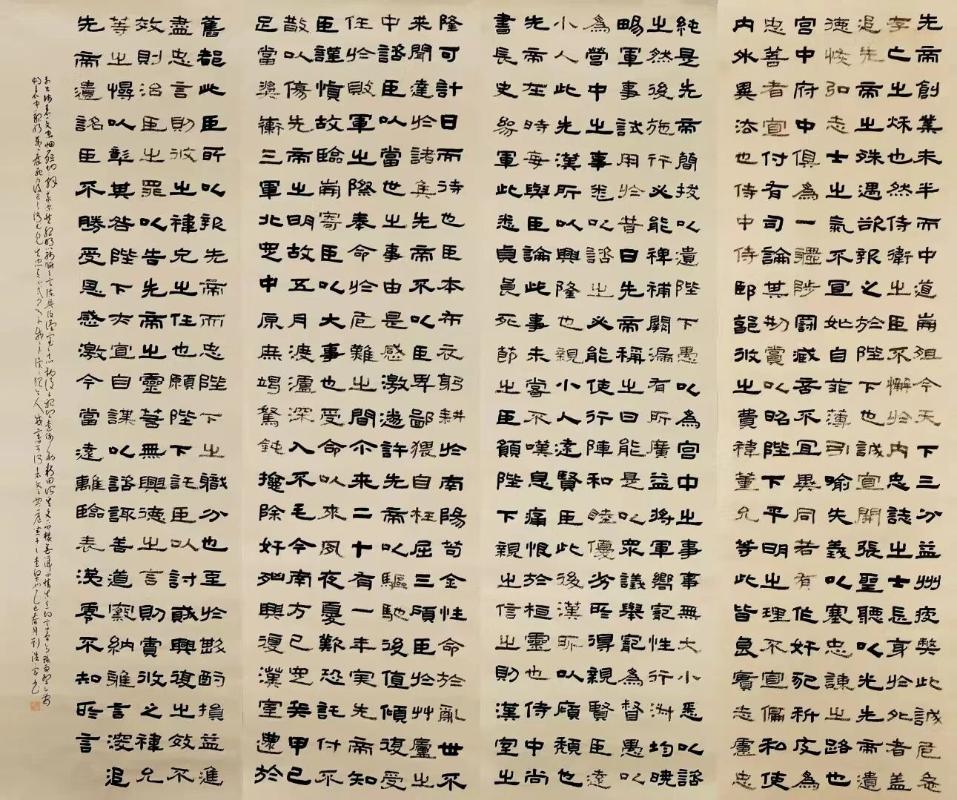 先帝創業未半而中道崩殂今天下三分益州疲弊此誠危急
存亡之秋也然侍衛之臣不懈於內忠誌之士忘身於外者蓋
追先帝之殊遇欲報之於陛下也誠宜開張聖聽以光先帝遺
德恢弘志士之氣不宜妄自菲薄引喻失義以塞忠諫之路也
宮中府中俱為一體陟罰臧否不宜異同若有作奸犯科及為
忠善者宜付有司論其刑賞以昭陛下平明之理不宜偏私使
內外異法也侍中侍郎郭攸之費禕董允等此皆良實志慮忠
純是先帝簡拔以遺陛下愚以為宮中之事事無大小悉以諮
之然後施行必能裨補闕漏有所廣益將軍嚮寵性行淑均曉
暢軍事試用於昔日先帝稱之曰能是以眾議舉寵為督愚以
為營中之事悉以諮之必能使行陣和睦優劣所得親賢臣遠
小人此先漢所以興隆也親小人遠賢臣此後漢所以傾頹也
先帝在時每與臣論此事未嘗不嘆息痛恨於桓靈也侍中尚
書長史參軍此悉貞良死節之臣願陛下親之信之則漢室之
隆可計日而待也臣本布衣躬耕於南陽苟全性命於亂世不
求聞達於諸侯先帝不以臣卑鄙猥自枉屈三顧臣於草廬之
中諮臣以當世之事由是感激遂許先帝以驅馳後值傾覆受
任於敗軍之際奉命於危難之間尒來二十有一年矣先帝知
臣謹慎故臨崩寄臣以大事也受命以來夙夜憂歎恐託付不
效以傷先帝之明故五月渡瀘深入不毛今南方已定兵甲已
足當獎率三軍北定中原庶竭駑鈍攘除奸凶興復漢室還於
舊都此臣所以報先帝而忠陛下之職分也至於斟酌損益進
盡忠言則攸之禕允之任也願陛下託臣以討賊興復之效不
效則治臣之罪以告先帝之靈若無興德之言則責攸之禕允
等之慢以彰其咎陛下亦宜自謀以諮諏善道察納雅言深追
先帝遺詔臣不勝受恩感激今當遠離臨表涕零不知所言